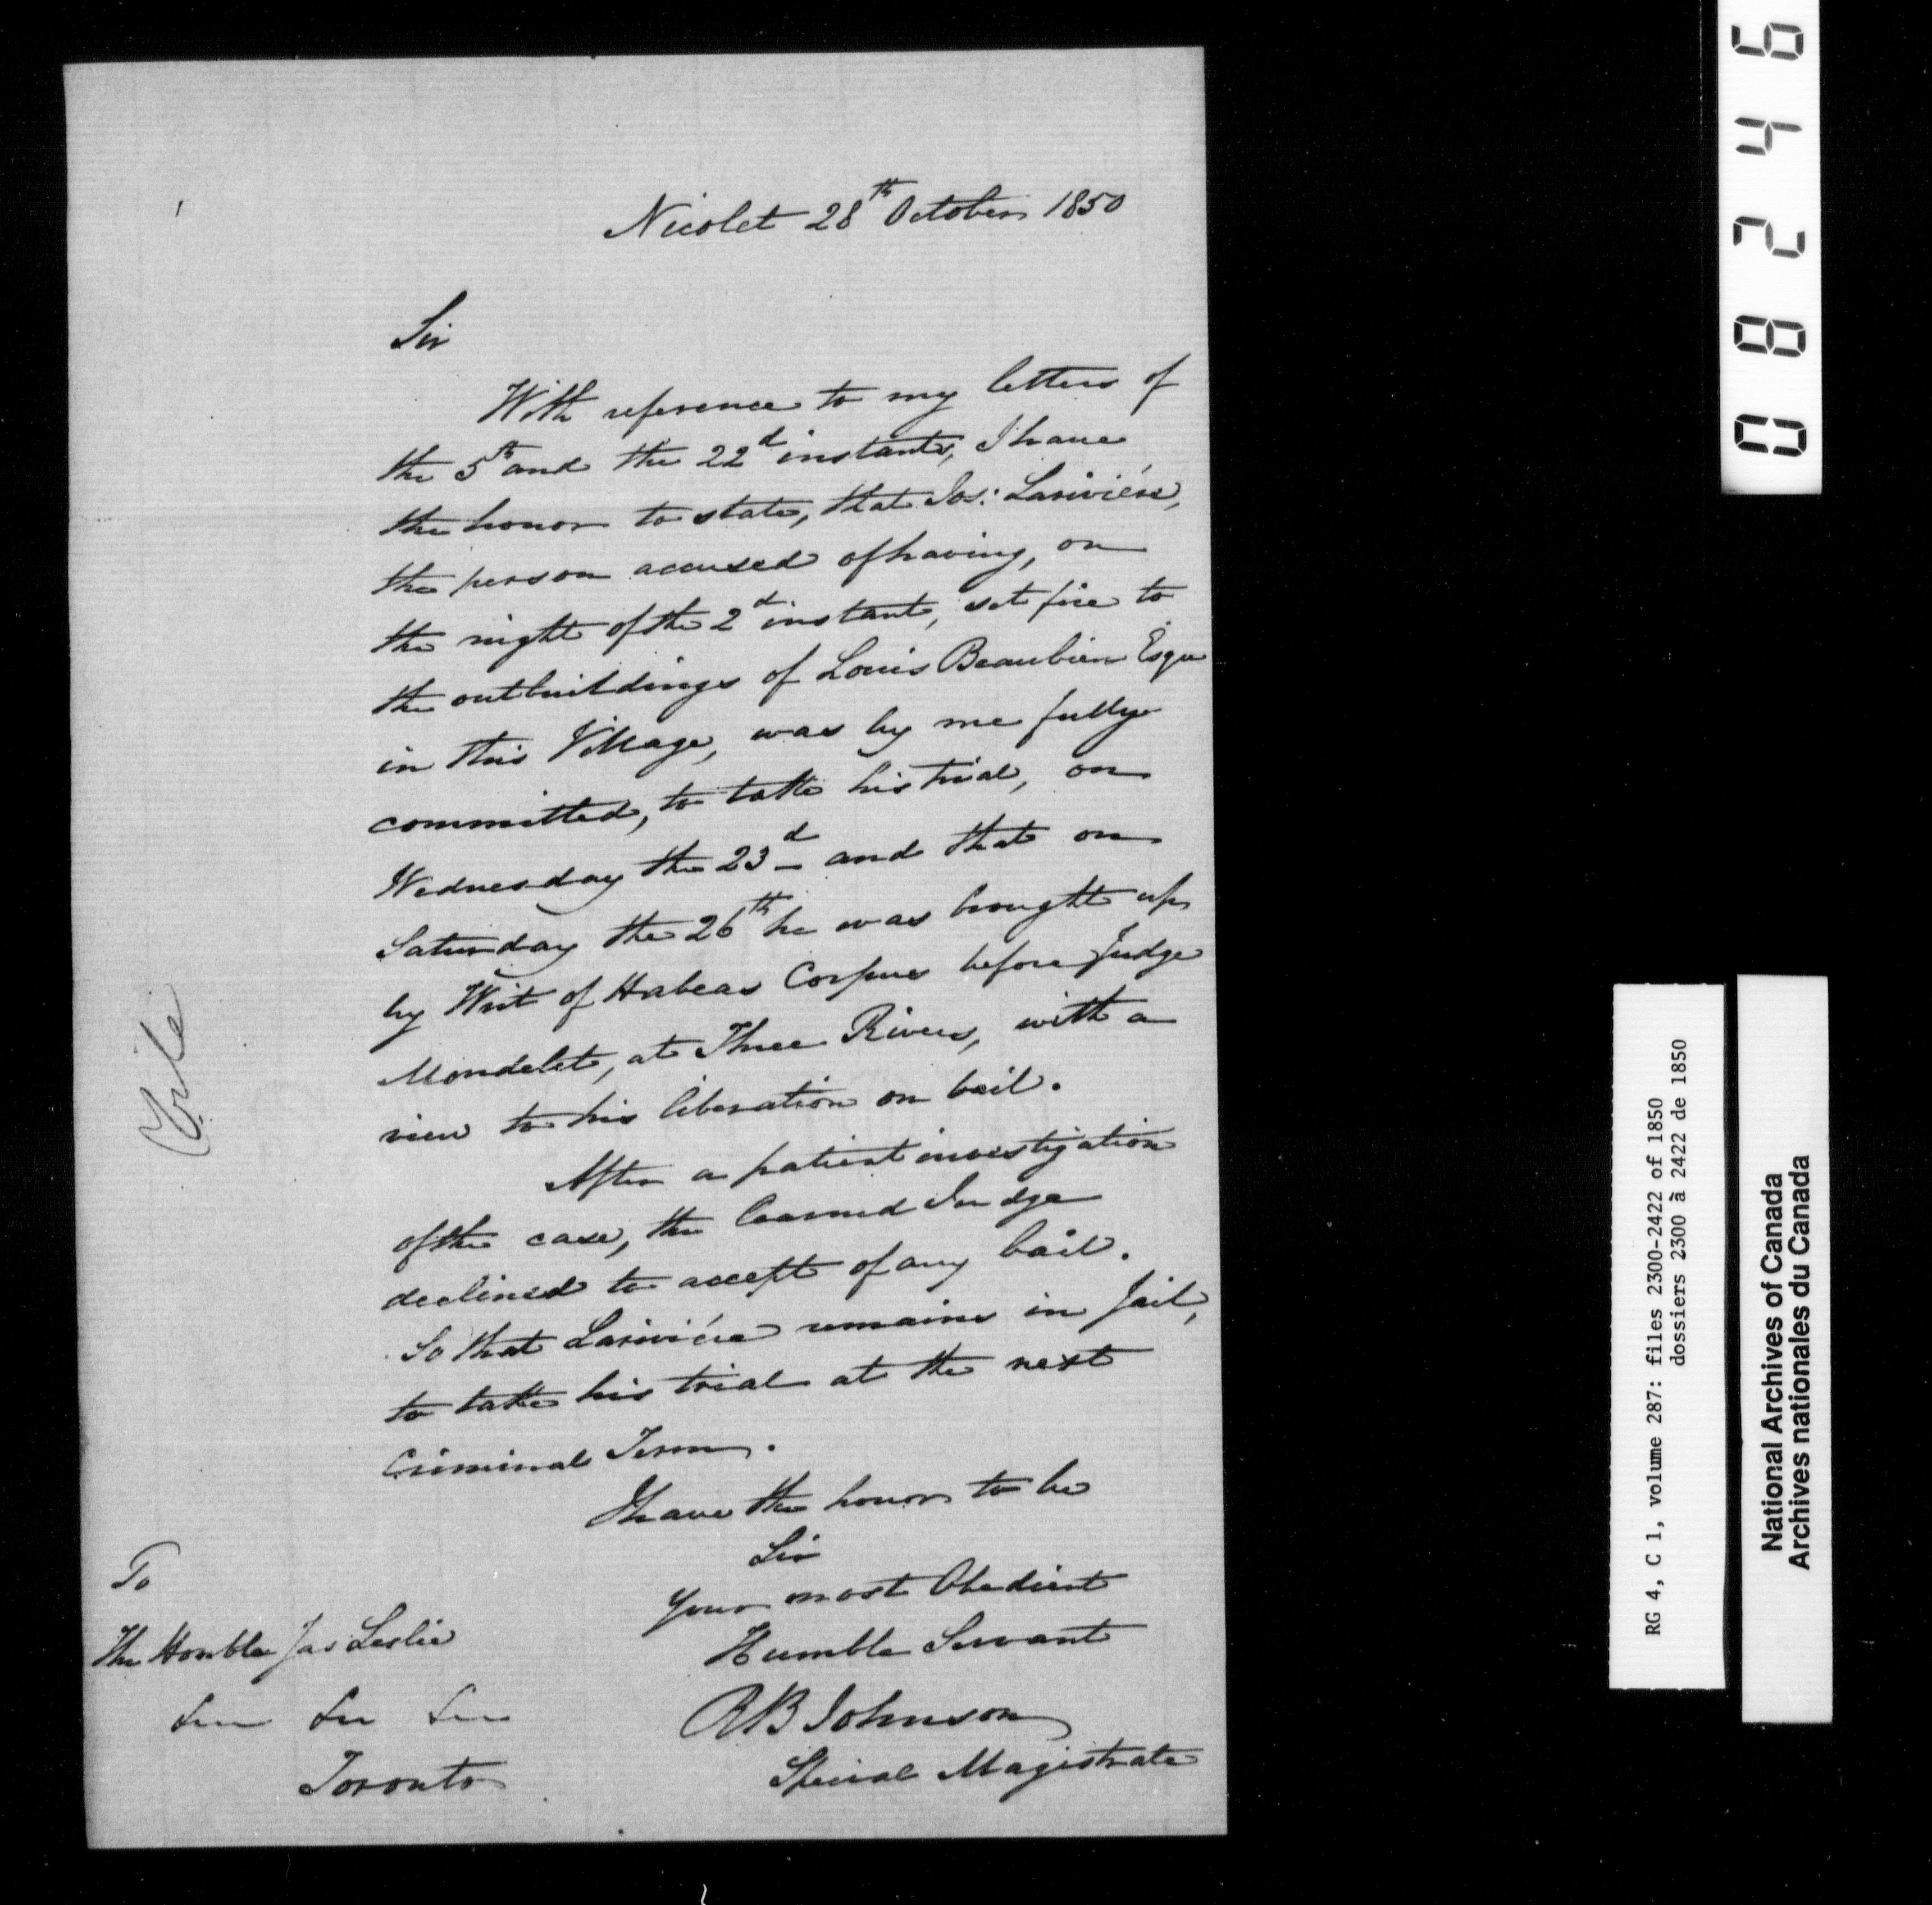 Nicolet 28th October 1850
Sir
With reference to my letters of
the 5th and the 22d instants, I have
the honor to state, that Jos: Lariviére,
the person accused of having, on
the night of the 2d instant, set fire to
the outbuildings of Louis Beaubien Esqu
in this Village, was by me fully
committed, to take his trial, on
Wednesday the 23d and that on
Saturday the 26th he was brought up
by Writ of Habeas Corpus before Judge
Mondelet, at Three Rivers, with a
view to his liberation on bail.
After a patient investigation
of the case, the learned Judge
declined to accept of any bail.
So that Lariviére remains in Jail,
to take his trial at the next
Criminal Term.
I have the honor to be
Sir
Your most Obedient
Humble Servant
R B Johnson
Special Magistrate
To
The Honble Jas Leslie
Toronto
File
08246
RG 4, C 1, volume 287: files 2300-2422 of 1850
dossiers 2300 à 2422 de 1850
National Archives of Canada
Archives nationales du Canada